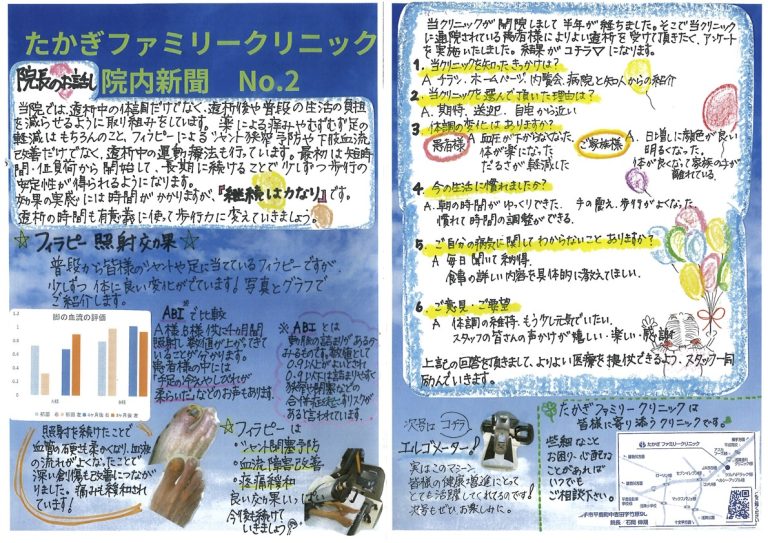 たかぎファミリークリニック
院長のお話し
院内新聞 No.2
当院では、透析中の体調だけでなく、透析後や普段の生活の負担
を減らせるように取り組みをしています。薬による痛みやむずむず足の
軽減はもちろんのこと、フィラピーによるシャント狭窄予防や下肢血流
改善だけでなく、透析中の運動療法も行っています。最初は短時
間・低負荷から開始して、長期に続けることで少しずつ歩行の
安定性が得られるようになります。
効果の実感には時間がかかりますが、『継続は力なり』です。
透析の時間も有意義に使って歩行力に変えていきましょう。
☆フィラピー照射効果☆
普段から皆様のシャントや足に当てているフィラピーですが、
少しずつ体に良い変化がでています!写真とグラフで
ご紹介します。
脚の血流の評価
1.2
1
0.8
0.6
0.4
0.2
0
A様
B様
ABIで比較
A様B様供に4ヵ月間
照射し数値が上がってきて
いることが分かります。
患者様の中には
「手足の冷えやしびれが
柔らいだ」などのお声もあります。
※ABIとは
動脈の詰まりがあるか
みるものです。数値として
0.9以上がよいとされ
0.9以下は詰まりやすく
狭窄や閉塞などの
合併症が起こすリスクが
あると言われています。
照射を続けたことで
血管の硬さも柔かくなり、血液
の流れがよくなったことで
深い創傷も改善につながり
ました。痛みも緩和されて
います!
☆フィラピーは
・シャント閉塞予防
・血流障害改善
・疼痛緩和
良い効果いっぱい
今後も続けて
いきましょう!
当クリニックが開院しまして半年が経ちました。そこで当クリニック
に通院されている患者様によりよい透析を受けて頂きたく、アンケート
を実施いたしました。結果がコチラ▽になります。
1. 当クリニックを知ったきっかけは?
A チラシ、ホームページ、内覧会、病院と知人からの紹介
2. 当クリニックを選んで頂いた理由は?
A. 期待、送迎、自宅から近い
3. 体調の変化はありますか?
患者様
A 血圧が下がらなくなった。
体が楽になった
だるさが軽減した
ご家族様
A. 日増しに顔色が良い
明るくなった。
体が良くなって家族の手が
離れている。
4. 今の生活に慣れましたか?
A. 朝の時間がゆっくりできた。手の震え、歩行がよくなった。
慣れて時間の調整ができる。
5. ご自分の病気に関してわからないことありますか?
A 毎日聞いて納得。
食事の詳しい内容を具体的に教えてほしい。
6. ご意見・ご要望
A 体調の維持、もう少し元気でいたい。
スタッフの皆さんの声かけが嬉しい・楽しい・感謝
上記の回答を頂きまして、よりよい医療を提供できるよう、スタッフ一同
励んでいきます。
次号は コチラ
エルゴメーター!
実はこのマシーン、
皆様の健康増進にとって
とても活躍してくれてるのです!
次号もぜひお楽しみに。
たかぎファミリークリニックは
皆様に寄り添うクリニックです。
些細なこと
お困り・心配な
ことがあれば
いつでも
ご相談下さい。
たかぎファミリークリニック